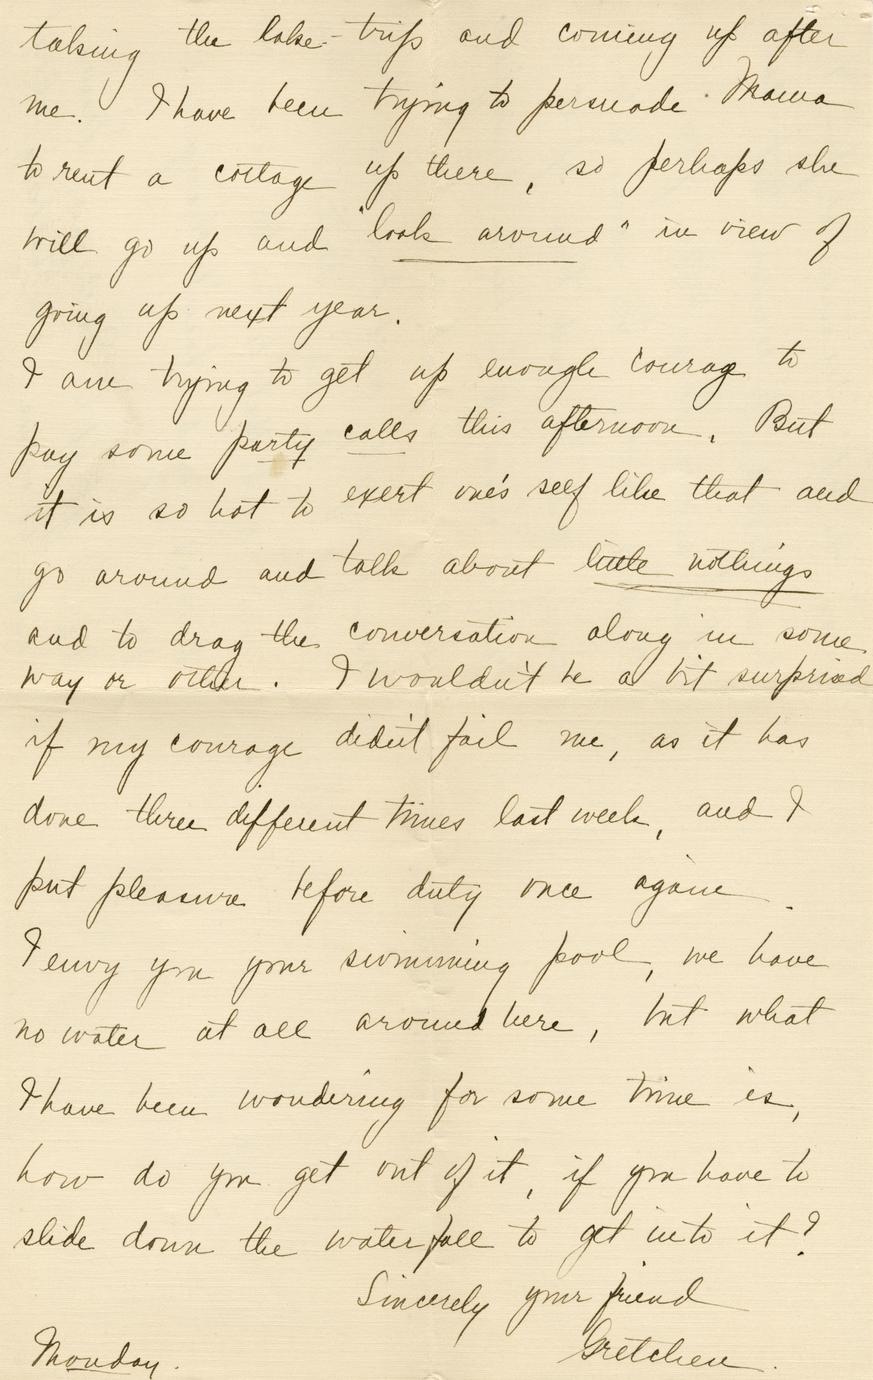 taking the lake-trip and coming up after
me. I have been trying to persuade Mama
to rent a cottage up there, so perhaps she
will go up and "look around" in view of
going up next year.
I am trying to get up enough courage to
pay some party calls this afternoon. But
it is so hot to exert one's self like that and
go around and talk about little nothings
and to drag the conversation along in some
way or other. I wouldn't be a bit surprised
if my courage didn't fail me, as it has
done three different times last week, and I
put pleasure before duty once again.
I envy you your swimming pool, we have
no water at all around here, but what
I have been wondering for some time is,
how do you get out of it, if you have to
slide down the waterfall to get into it?
Sincerely your friend
Gretchen.
Monday.